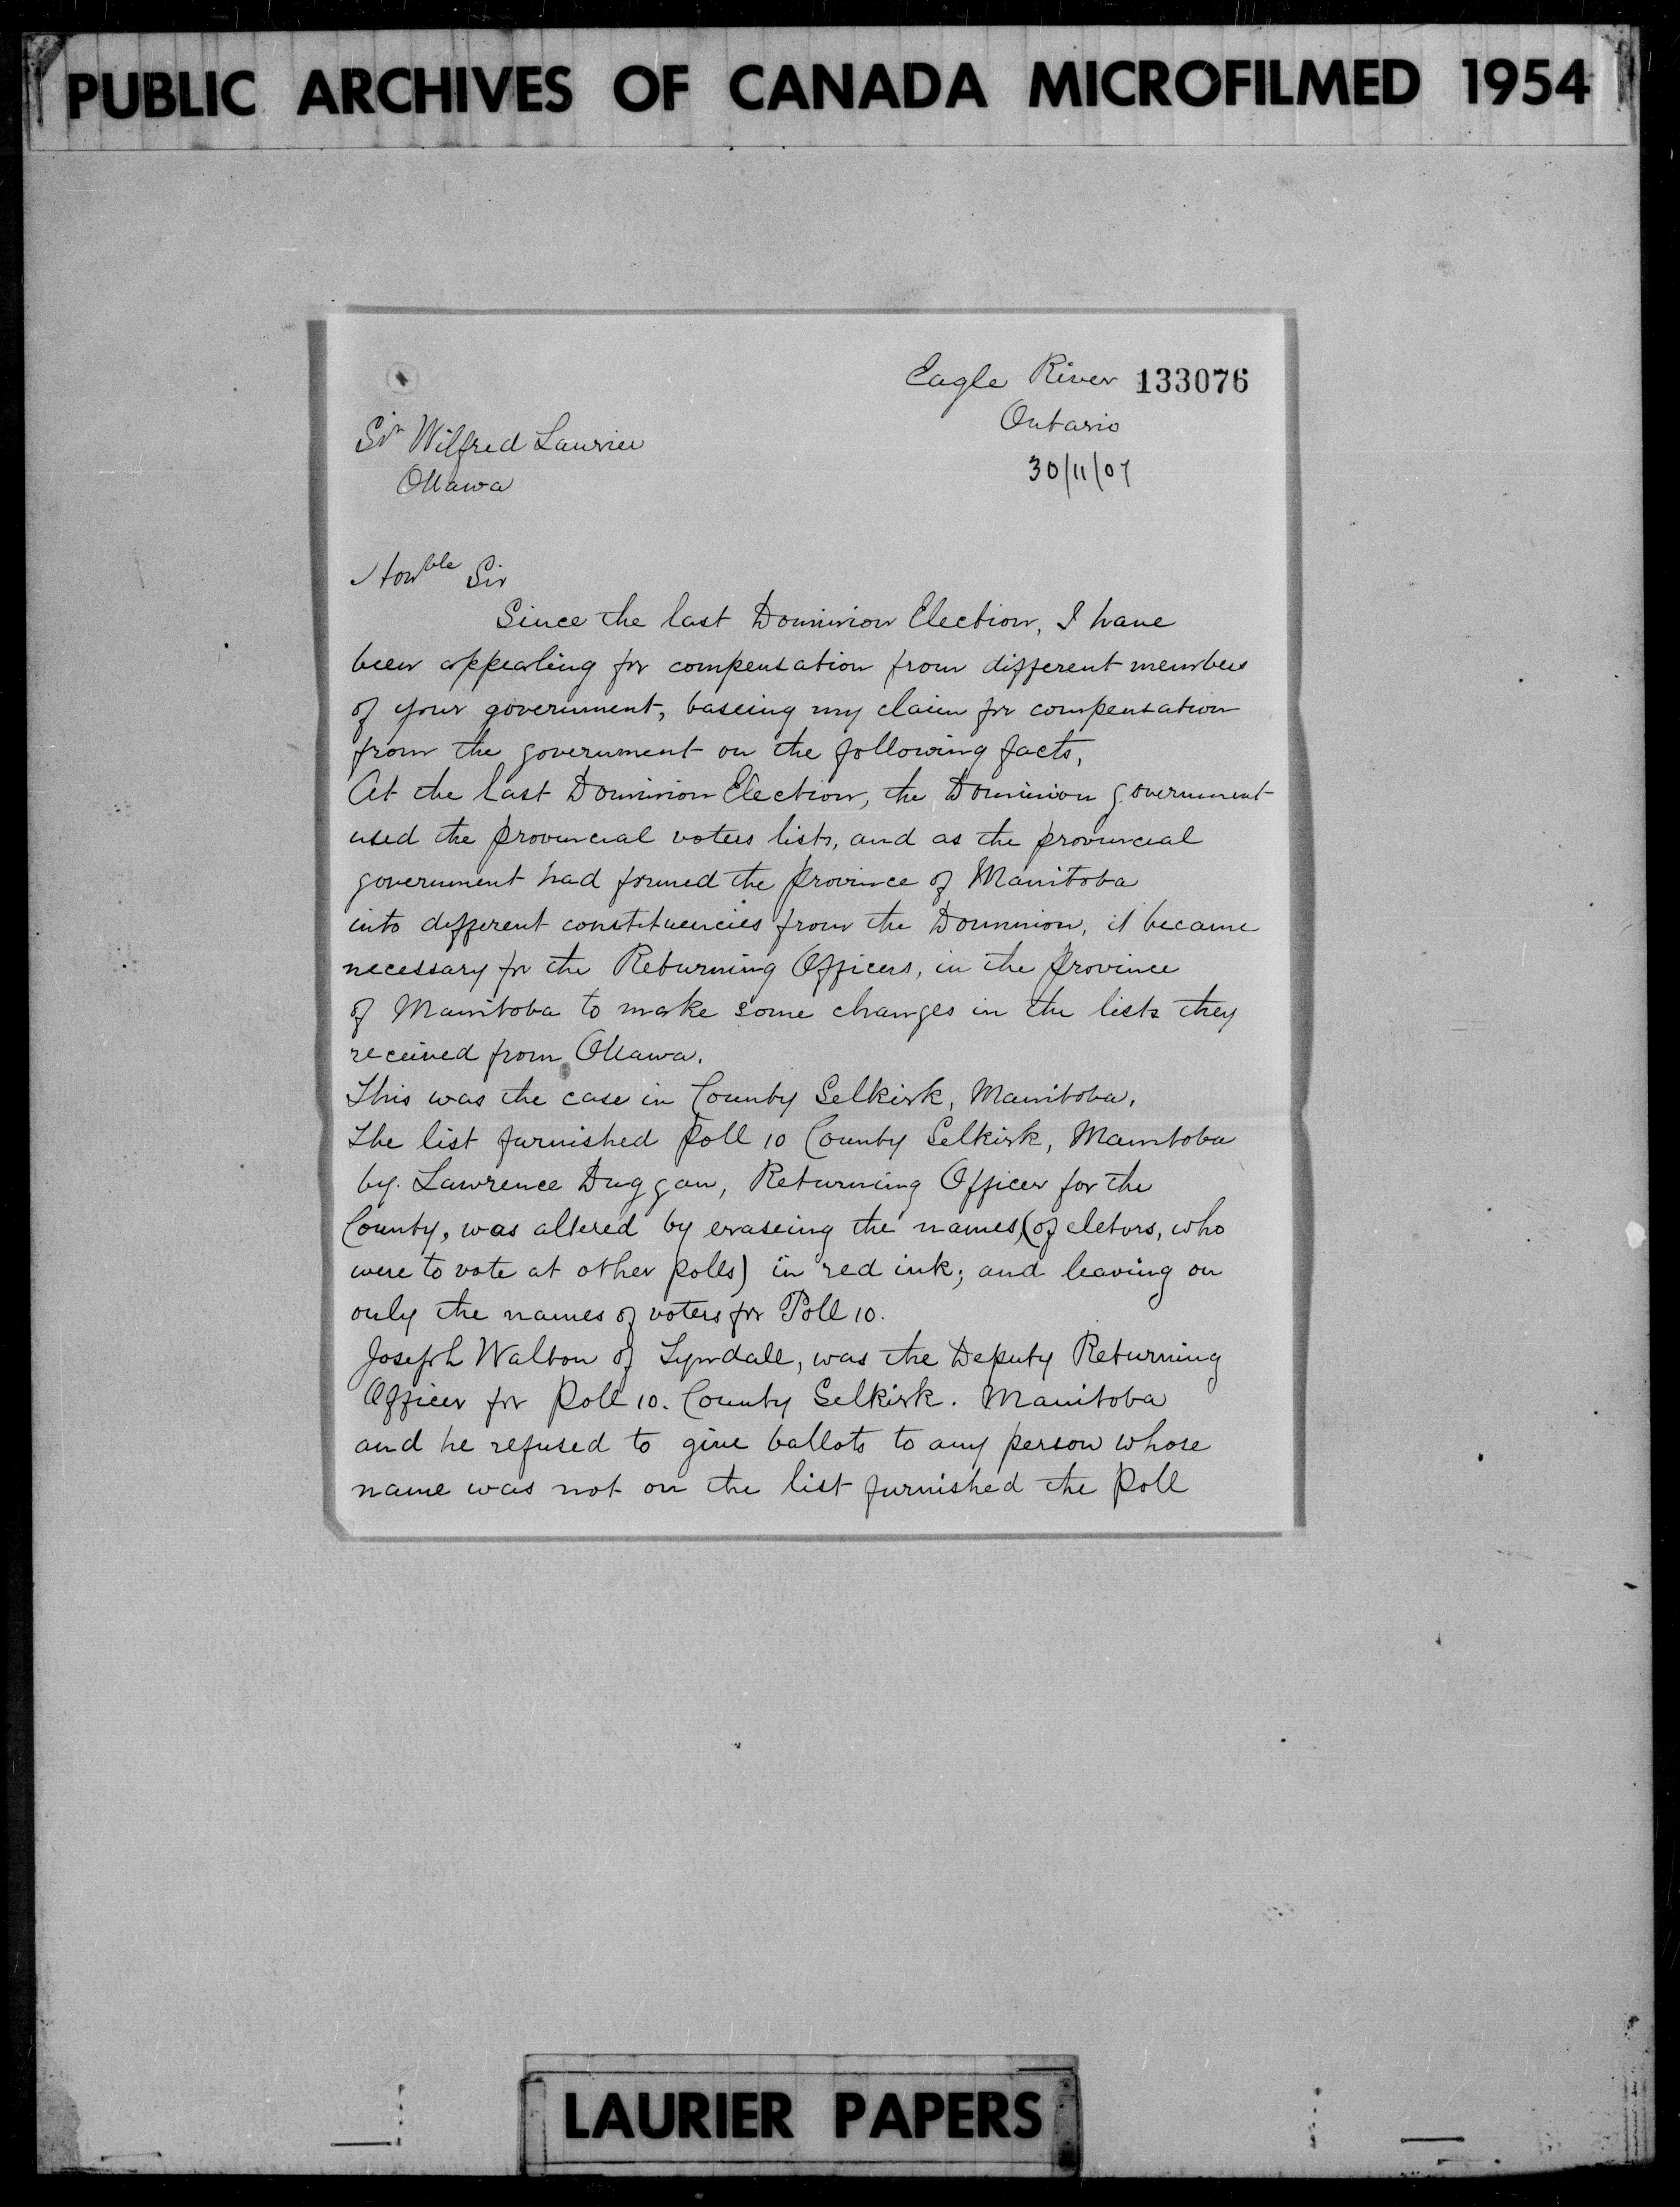 PUBLIC ARCHIVES OF CANADA MICROFILMED 1954
Eagle River 133076
Ontario
30/11/07
Sir Wilfred Laurier
Ottawa
Honble Sir
Since the last Dominion Election, I have
been appealing for compensation from different members
of your government, baseing my claim for compensation
from the government on the following facts,
At the last Dominion Election, the Dominion government
used the provincial voters lists, and as the provincial
government had formed the province of Manitoba
into different constituencies from the Dominion, it became
necessary for the Returning Officers, in the province
of Manitoba to make some changes in the lists they
received from Ottawa.
This was the case in County Selkirk, Manitoba.
The list furnished Poll 10 County Selkirk, Manitoba
by Lawrence Duggan, Returning Officer for the
County, was altered by eraseing the names, (of eletors, who
were to vote at other polls) in red ink; and leaving on
only the names of voters for Poll 10.
Joseph Walton of Tyndall, was the Deputy Returning
Officer for Poll 10. County Selkirk. Manitoba
and he refused to give ballots to any person whose
name was not on the list furnished the Poll
LAURIER PAPERS